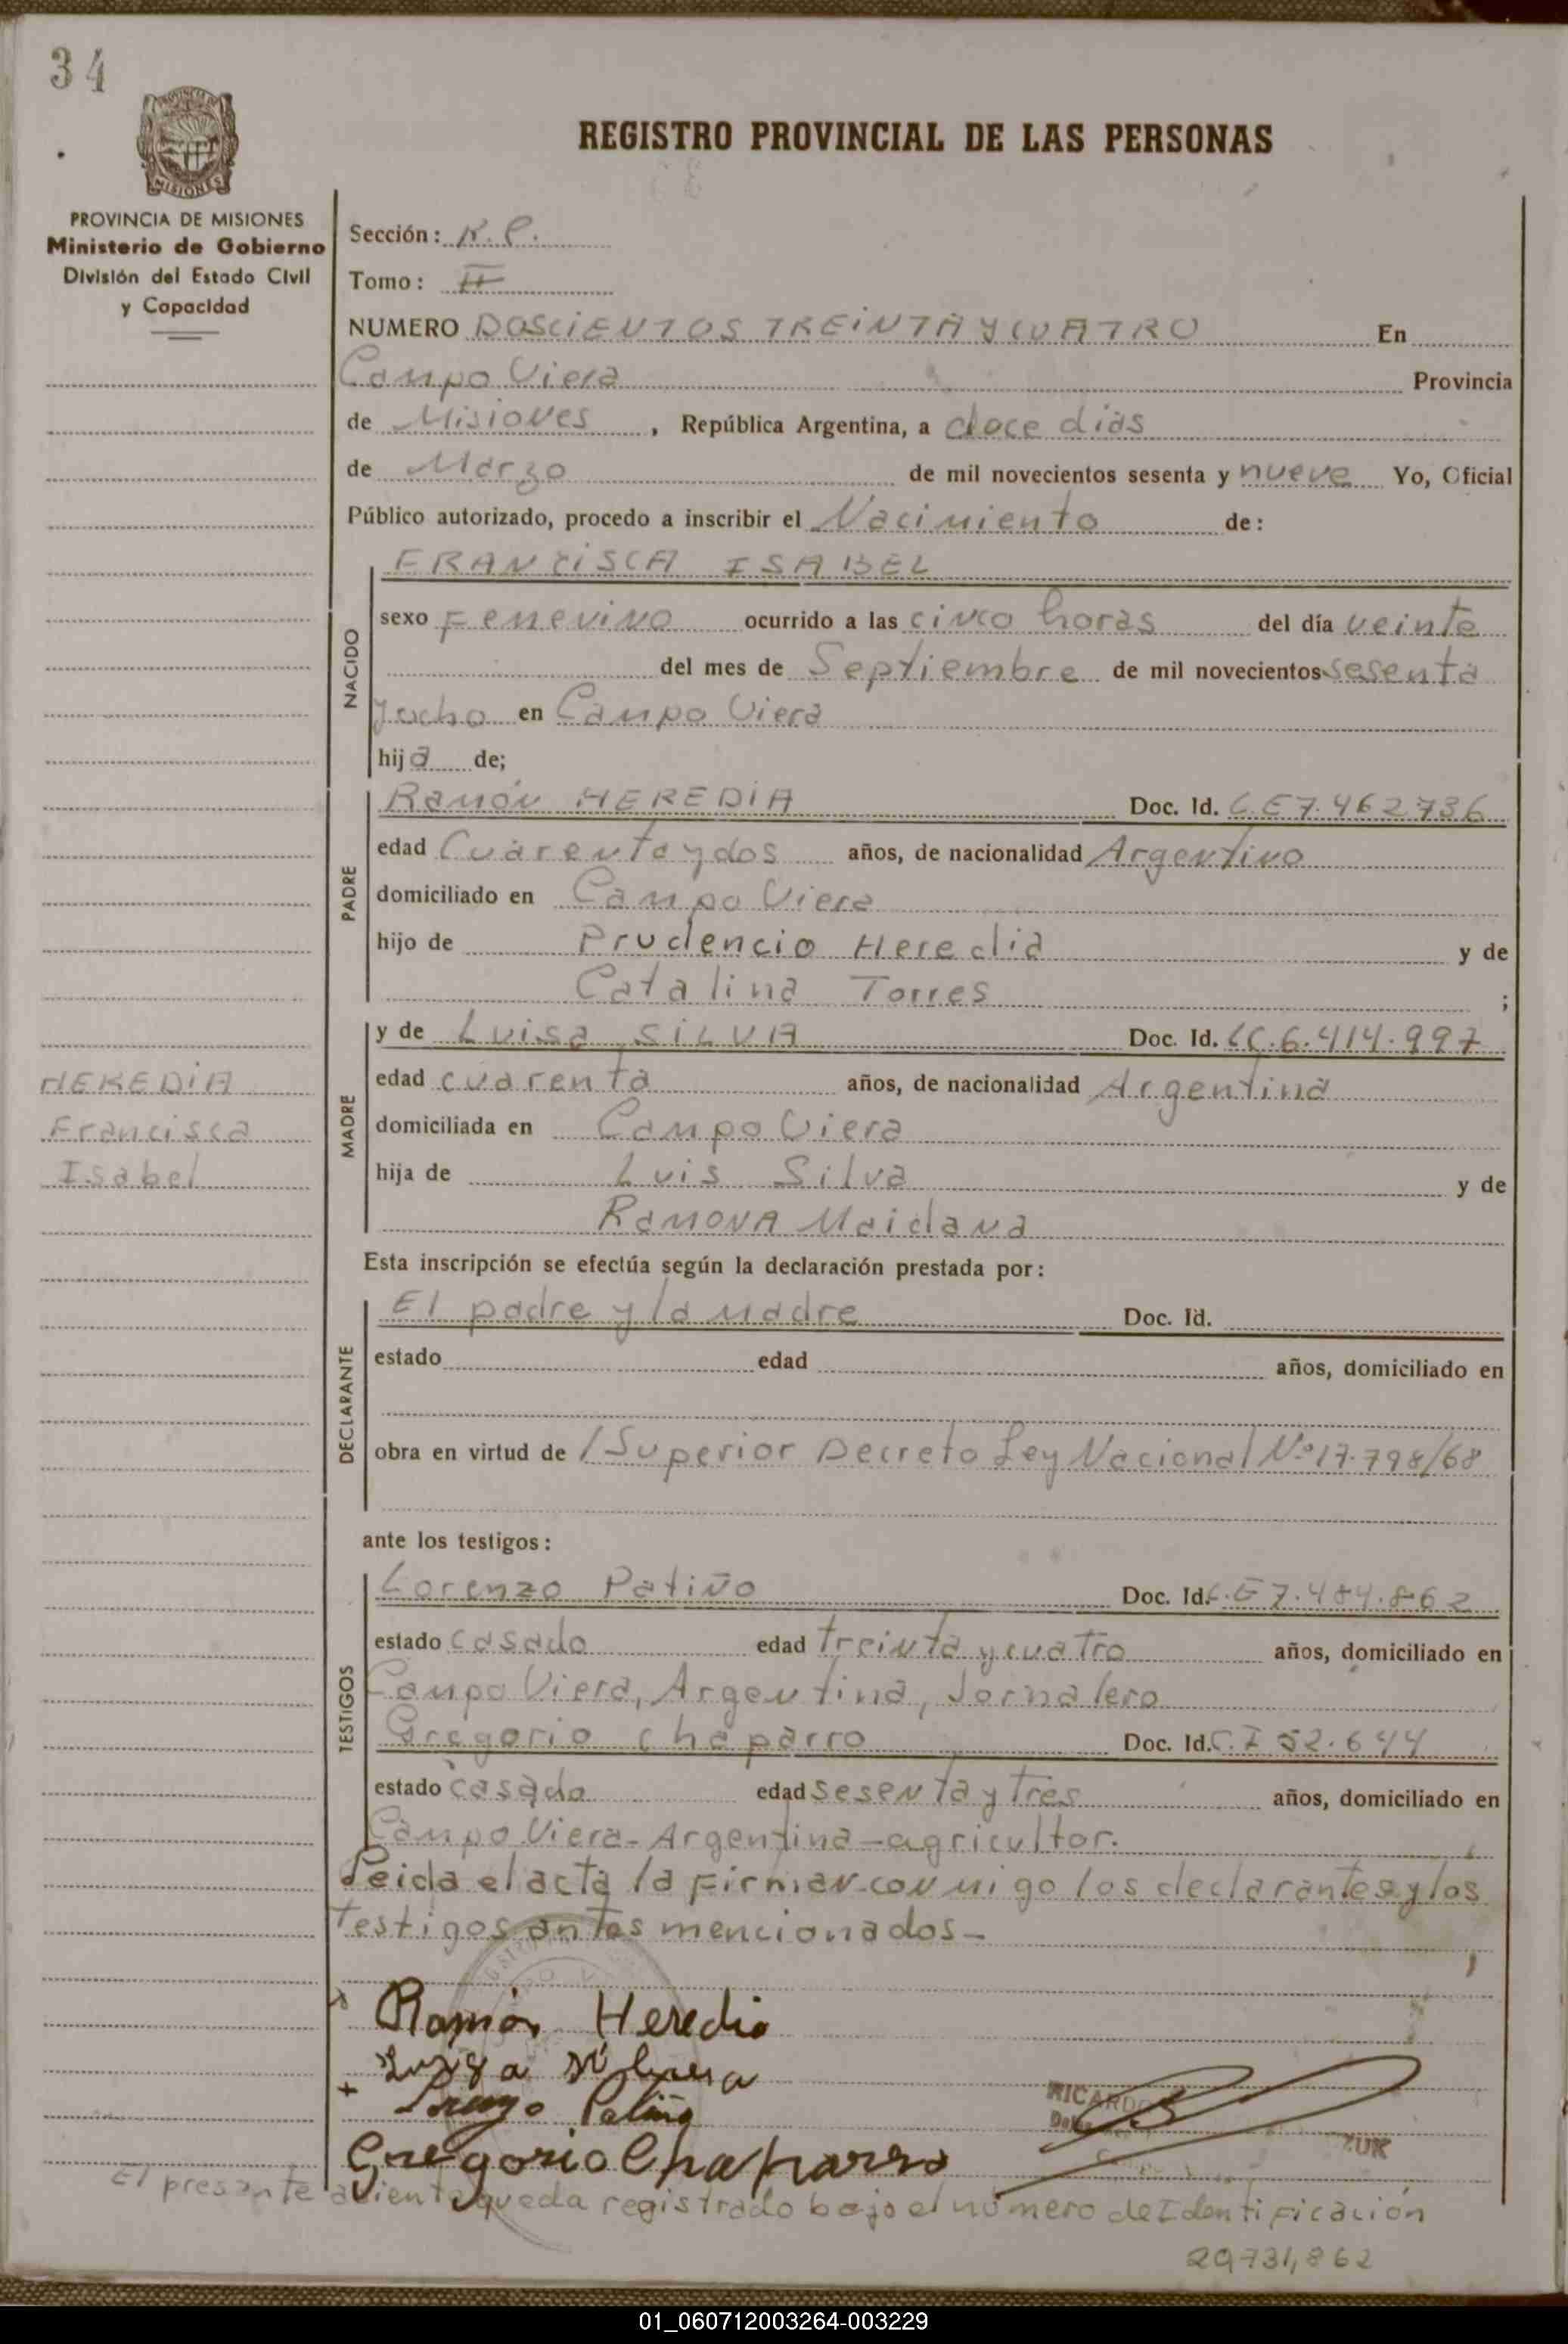 34
PROVINCIA DE MISIONES
Ministerio de Gobierno
División del Estado Civil
y Capacidad
REGISTRO PROVINCIAL DE LAS PERSONAS
Sección:
Tomo: II
NUMERO DOSCIENTOS TREINTA Y CUATRO En
Campo Viera Provincia
de Misiones, República Argentina, a doce dias
de Marzo de mil novecientos sesenta y nueve Yo, Oficial
Público autorizado, procedo a inscribir el Nacimiento de:
NACIDO
FRANCISCA ISABEL
sexo Femenino ocurrido a las cinco horas del día veinte
del mes de Septiembre de mil novecientos sesenta
y ocho en Campo Viera
hija de;
PADRE
Ramón HEREDIA Doc. Id. L E 7.462736
edad Cuarenta y dos años, de nacionalidad Argentino
domiciliado en Campo Viera
hijo de Prudencio Heredia y de
Catalina Torres ;
MADRE
y de Luisa SILVA Doc. Id. LC.6.414.997
edad cuarenta años, de nacionalidad Argentina
domiciliada en Campo Viera
hija de Luis Silva y de
RAMONA Maidana
HEREDIA
Francisca
Isabel
Esta inscripción se efectúa según la declaración prestada por:
DECLARANTE
El padre y la madre Doc. Id.
estado edad años, domiciliado en
obra en virtud de / Superior Decreto Ley Nacional Nº 17.798/68
ante los testigos:
TESTIGOS
Lorenzo Patiño Doc. Id. L.E 7.484.862
estado casado edad treinta y cuatro años, domiciliado en
Campo Viera, Argentina, Jornalero
Gregorio Chaparro Doc. Id. C.I 52.644
estado casado edad sesenta y tres años, domiciliado en
Campo Viera - Argentina - agricultor.
Leida el acta la firman conmigo los declarantes y los
testigos antes mencionados -
Ramón Heredia
Gregorio Chaparro
RICARDO
El presente asiento queda registrado bajo el número de Identificación
20,731,862
01_060712003264-003229